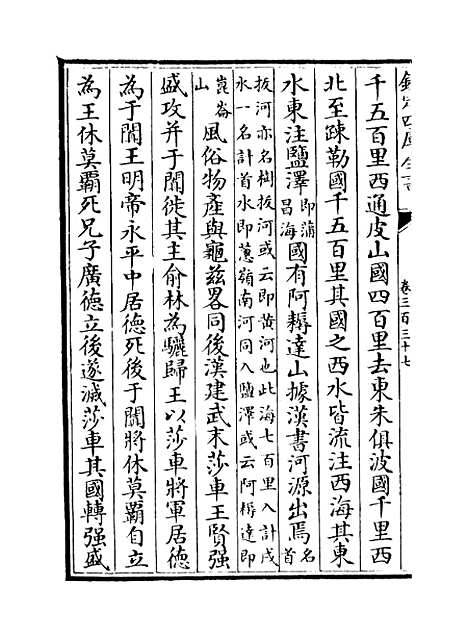 欽定四庫全書
卷三百三十七
千五百里西通皮山國四百里去東朱俱波國千里西
北至疎勒國千五百里其國之西水皆流注西海其東
水東注鹽澤即蒲昌海國有阿耨達山據漢書河源出焉名首
拔河亦名樹拔河或云即黄河也此海七百里入計戌
水一名計首水即蔥嶺南河同入鹽澤或云阿耨達即
崑崙山風俗物產與龜兹畧同後漢建武末莎車王賢强
盛攻并于闐徙其主俞林為驪歸王以莎車將軍居德
為于闐王明帝永平中居德死後于闐將休莫霸自立
為王休莫霸死兄子廣德立後遂滅莎車其國轉强盛